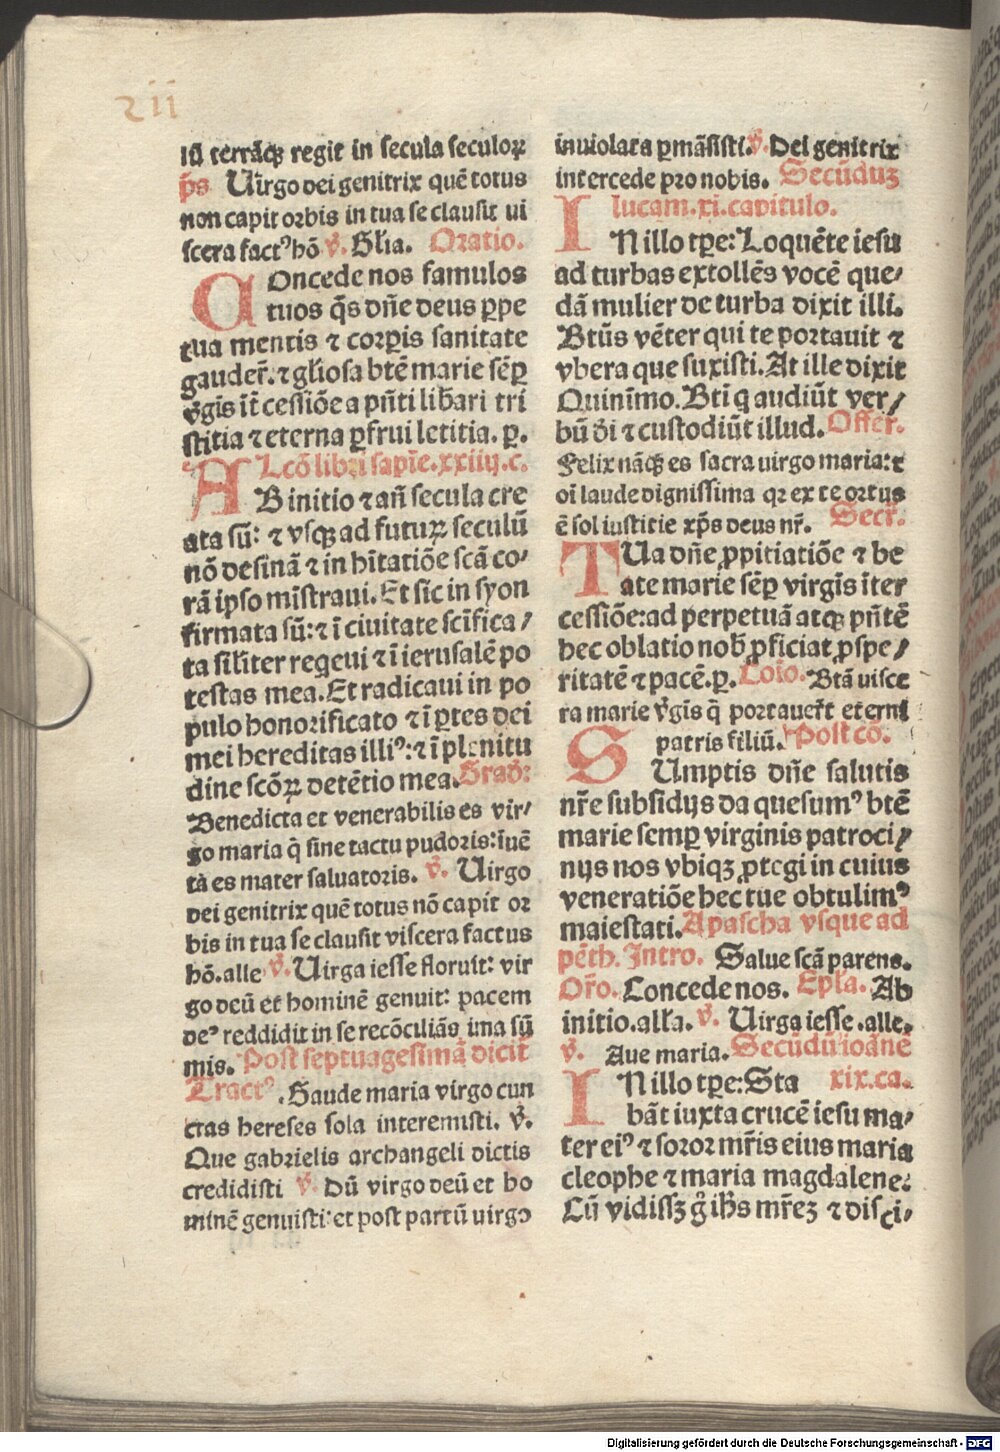 lū terrāqꝫ regit in secula seculoꝝ
p̄s Uirgo dei genitrix quē totus
non capit orbis in tua se clausit ui
scera factꝰ hō ℣. Gl̄ia. Oratio.
COncede nos famulos
tuos q̄s dn̄e deus ꝑpe
tua mentis ⁊ corꝑis sanitate
gauder̄. ⁊ gl̄iosa btē marie sēꝑ
v̄gis īt̄cessiōe a pn̄ti lib̄ari tri
stitia ⁊ eterna ꝑfrui letitia. ꝑ.
Lcō libri sapīe. xxiiij. c.
AB initio ⁊ an̄ secula cre
ata sū: ⁊ vsqꝫ ad futuꝝ seculū
nō desinā ⁊ in hītatiōe scā co⸗
rā ipso mīstraui. Et sic in syon
firmata sū: ⁊ ī ciuitate scīfica⸗
ta sil̄iter requeui ⁊ ī ierusalē po
testas mea. Et radicaui in po
pulo honorificato ⁊ ī ꝑtes dei
mei hereditas illiꝰ: ⁊ ī plenitu
dine scōꝝ detētio mea. Grad̄:
Benedicta et venerabilis es vir⸗
go maria q̄ sine tactu pudoris: īuē
ta es mater saluatoris. ℣. Uirgo
dei genitrix quē totus nō capit or
bis in tua se clausit viscera factus
hō. alle ℣. Uirga iesse floruit: vir
go deū et hominē genuit: pacem
deꝰ reddidit in se recōciliās ima sū
mis. Post septuagesimā dicit̄
Tractꝰ. Gaude maria virgo cun
ctas hereses sola interemisti. ℣.
Que gabrielis archangeli dictis
credidisti ℣. Dū virgo deū et ho
minē genuisti: et post partū uirgo
inuiolata ꝑmāsisti. ℣. Dei genitrix
intercede pro nobis. Secūduꝫ
lucam. xi. capitulo.
IN illo tꝑe: Loquēte iesu
ad turbas extollēs vocē que⸗
dā mulier de turba dixit illi.
Btūs vēter qui te portauit ⁊
vbera que suxisti. At ille dixit
Quinīmo. Btī q̇ audiūt ver⸗
bū d̄i ⁊ custodiūt illud. Offer.
Felix nāqꝫ es sacra uirgo maria: ⁊
oī laude dignissima qꝛ ex te ortus
ē sol iustitie xp̄s deus nr̄. Secr̄.
TUa dn̄e ꝓpitiatiōe ⁊ be
ate marie sēꝑ virgīs īter
cessiōe: ad perpetuā atqꝫ pn̄tē
hec oblatio nob̄ ꝓficiat ꝓspe⸗
ritatē ⁊ pacē. ꝑ. Coīo. Btā uisce
ra marie v̄gis q̄ portauer̄t eterni
patris filiū. Post cō.
SUmptis dn̄e salutis
nr̄e subsidijs da quesumꝰ btē
marie semꝑ virginis patroci⸗
nijs nos vbiqꝫ ꝓtegi in cuius
veneratiōe hec tue obtulimꝰ
maiestati. A pascha vsque ad
pēth. Intro. Salue scā parens.
Or̄o. Concede nos. Ep̄la. Ab
initio. all̄a. ℣. Uirga iesse. alle.
℣. Aue maria. Secūdū ioānē
IN illo tꝑe: Sta xix. ca.
bāt iuxta crucē iesu ma⸗
ter eiꝰ ⁊ soror mr̄is eius maria
cleophe ⁊ maria magdalene.
Cū vidissꝫ g̊ ih̄s mr̄eꝫ ⁊ disci⸗
Digitalisierung gefördert durch die Deutsche Forschungsgemeinschaft - DFG